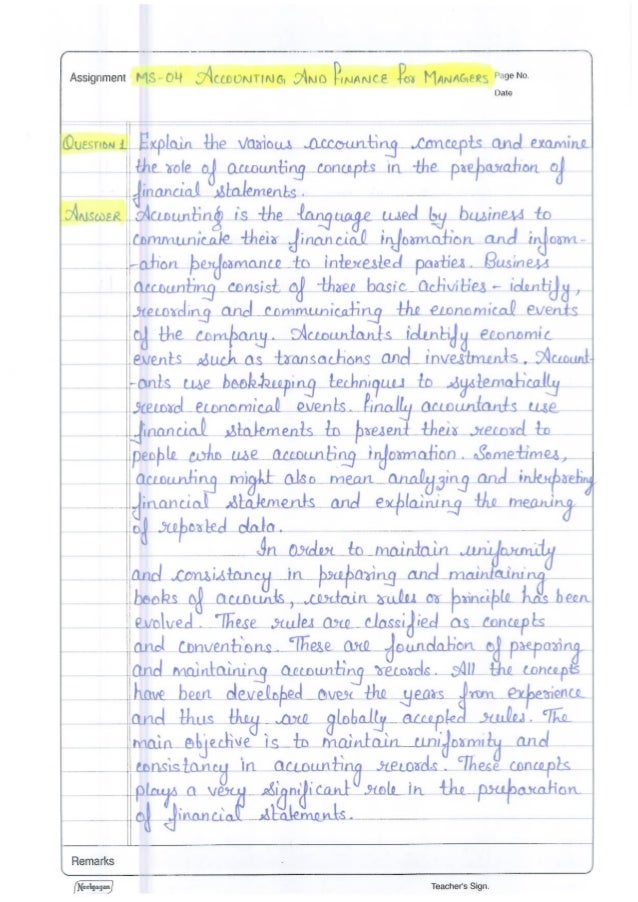 Assignment MS-04 ACCOUNTING AND FINANCE FOR MANAGERS Page No.
Date
QUESTION 1 Explain the various accounting concepts and examine
the role of accounting concepts in the preparation of
financial statements.
ANSWER Accounting is the language used by business to
communicate their financial information and inform-
-ation performance to interested parties. Business
accounting consist of three basic activities - identify,
recording and communicating the economical events
of the company. Accountants identify economic
events such as transactions and investments. Account-
-ants use bookkeeping techniques to systematically
record economical events. Finally accountants use
financial statements to present their record to
people who use accounting information. Sometimes,
accounting might also mean analyzing and interpreting
financial statements and explaining the meaning
of reported data.
In order to maintain uniformity
and consistancy in preparing and maintaining
books of accounts, certain rules or principle has been
evolved. These rules are classified as concepts
and conventions. These are foundation of preparing
and maintaining accounting records. All the concepts
have been developed over the years from experience
and thus they are globally accepted rules. The
main objective is to maintain uniformity and
consistancy in accounting records. These concepts
plays a very significant role in the preparation
of financial statements.
Remarks
Neelgagan Teacher's Sign.